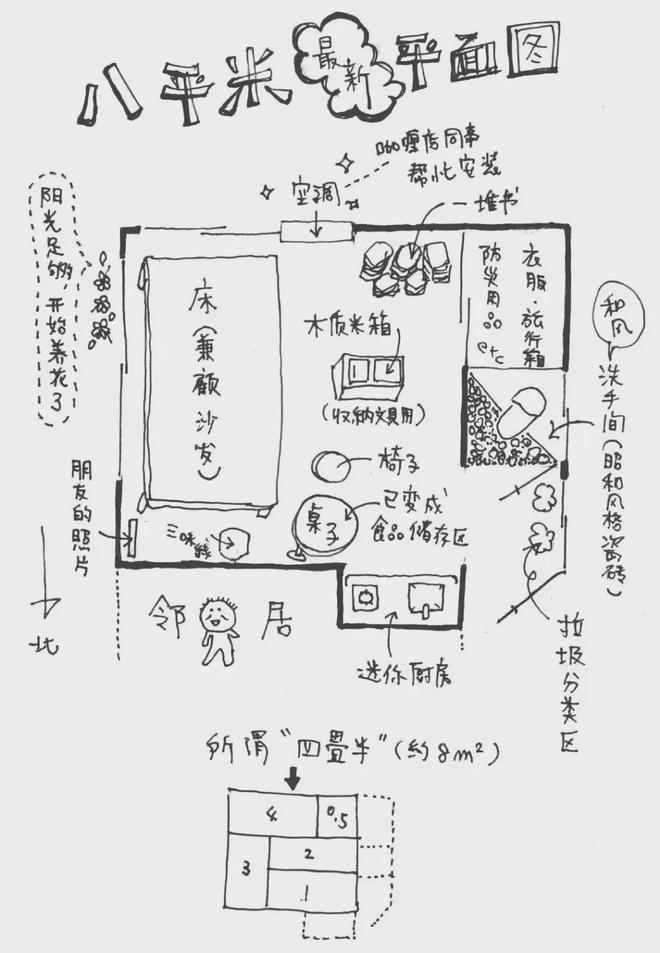 八平米最新平面图
咖喱店同事
帮忙安装
空调
一堆书
阳光足够，开始养花了
床（兼顾沙发）
木质米箱
（收纳文具用）
衣服·旅行箱
防災用品
etc
和风
洗手间（昭和风格瓷砖）
椅子
桌子
已变成
食品储存区
朋友的照片
三味線
北
邻居
迷你厨房
垃圾分类区
所谓“四畳半”（约8m²）
4
0.5
3
2
1